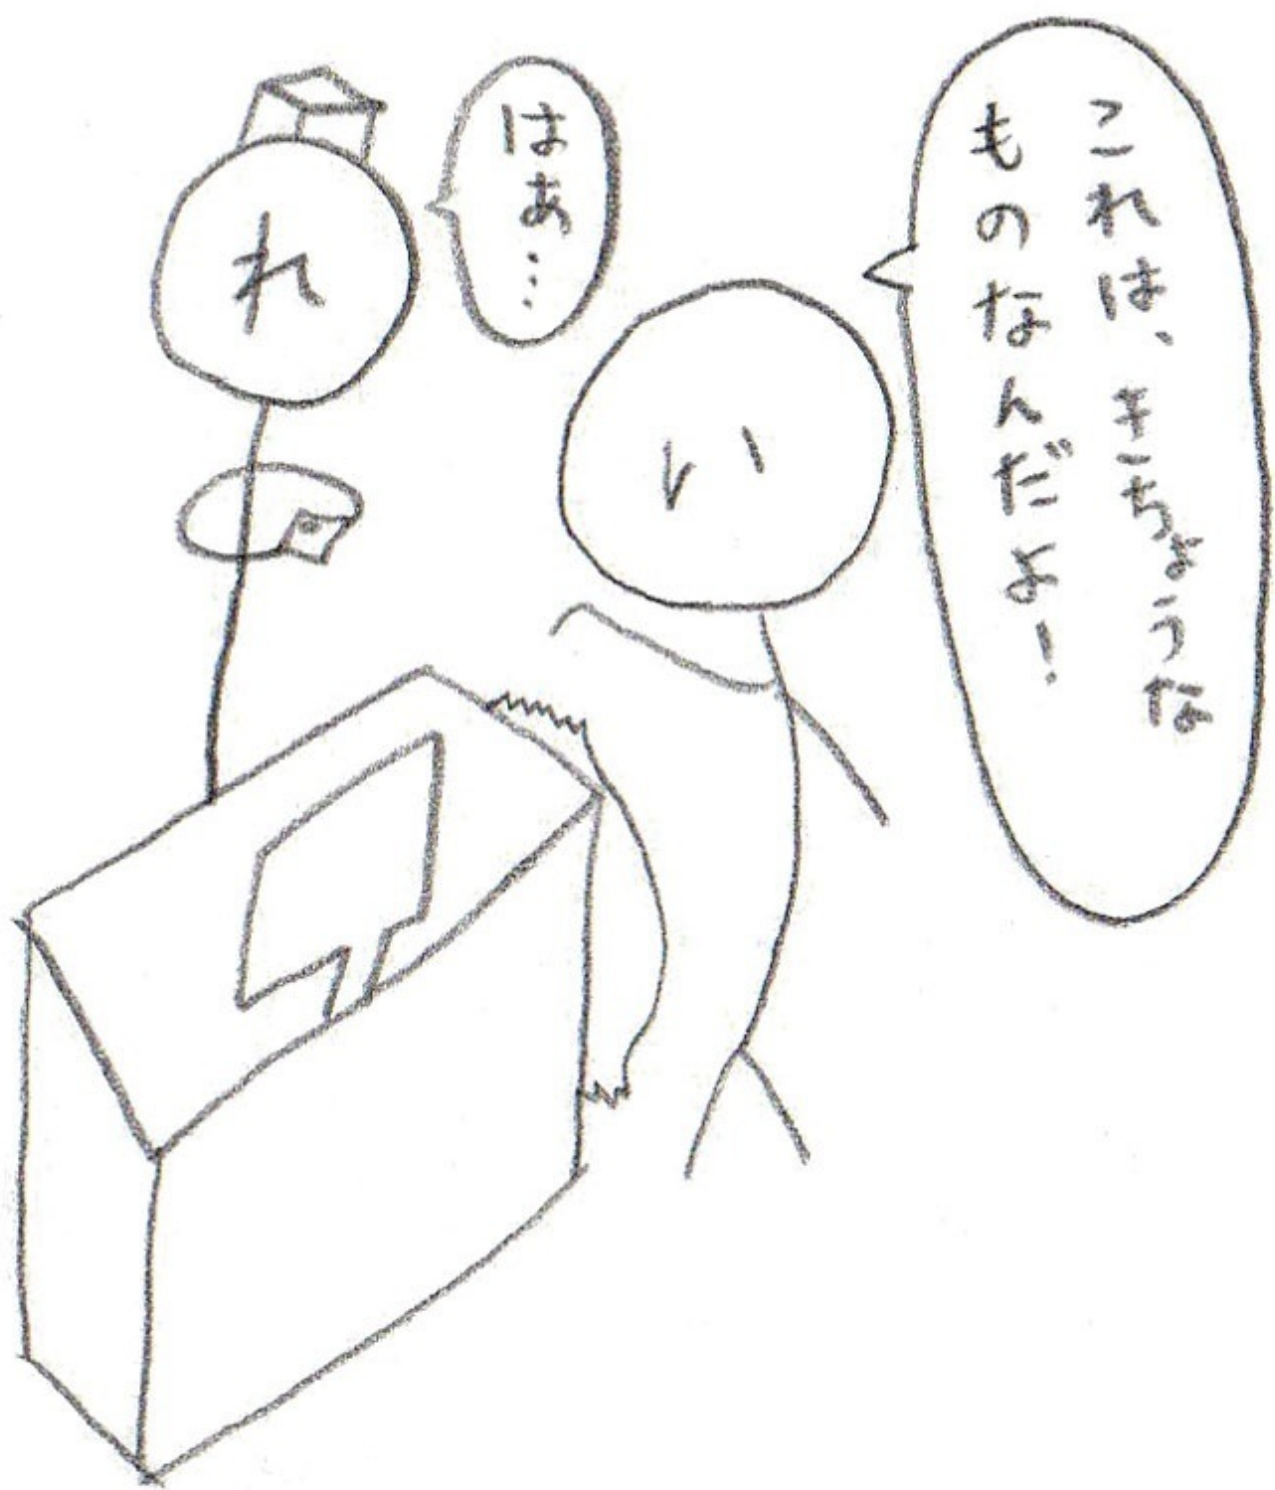 これは、きちょうな
ものなんだよ！
はあ…
い
れ